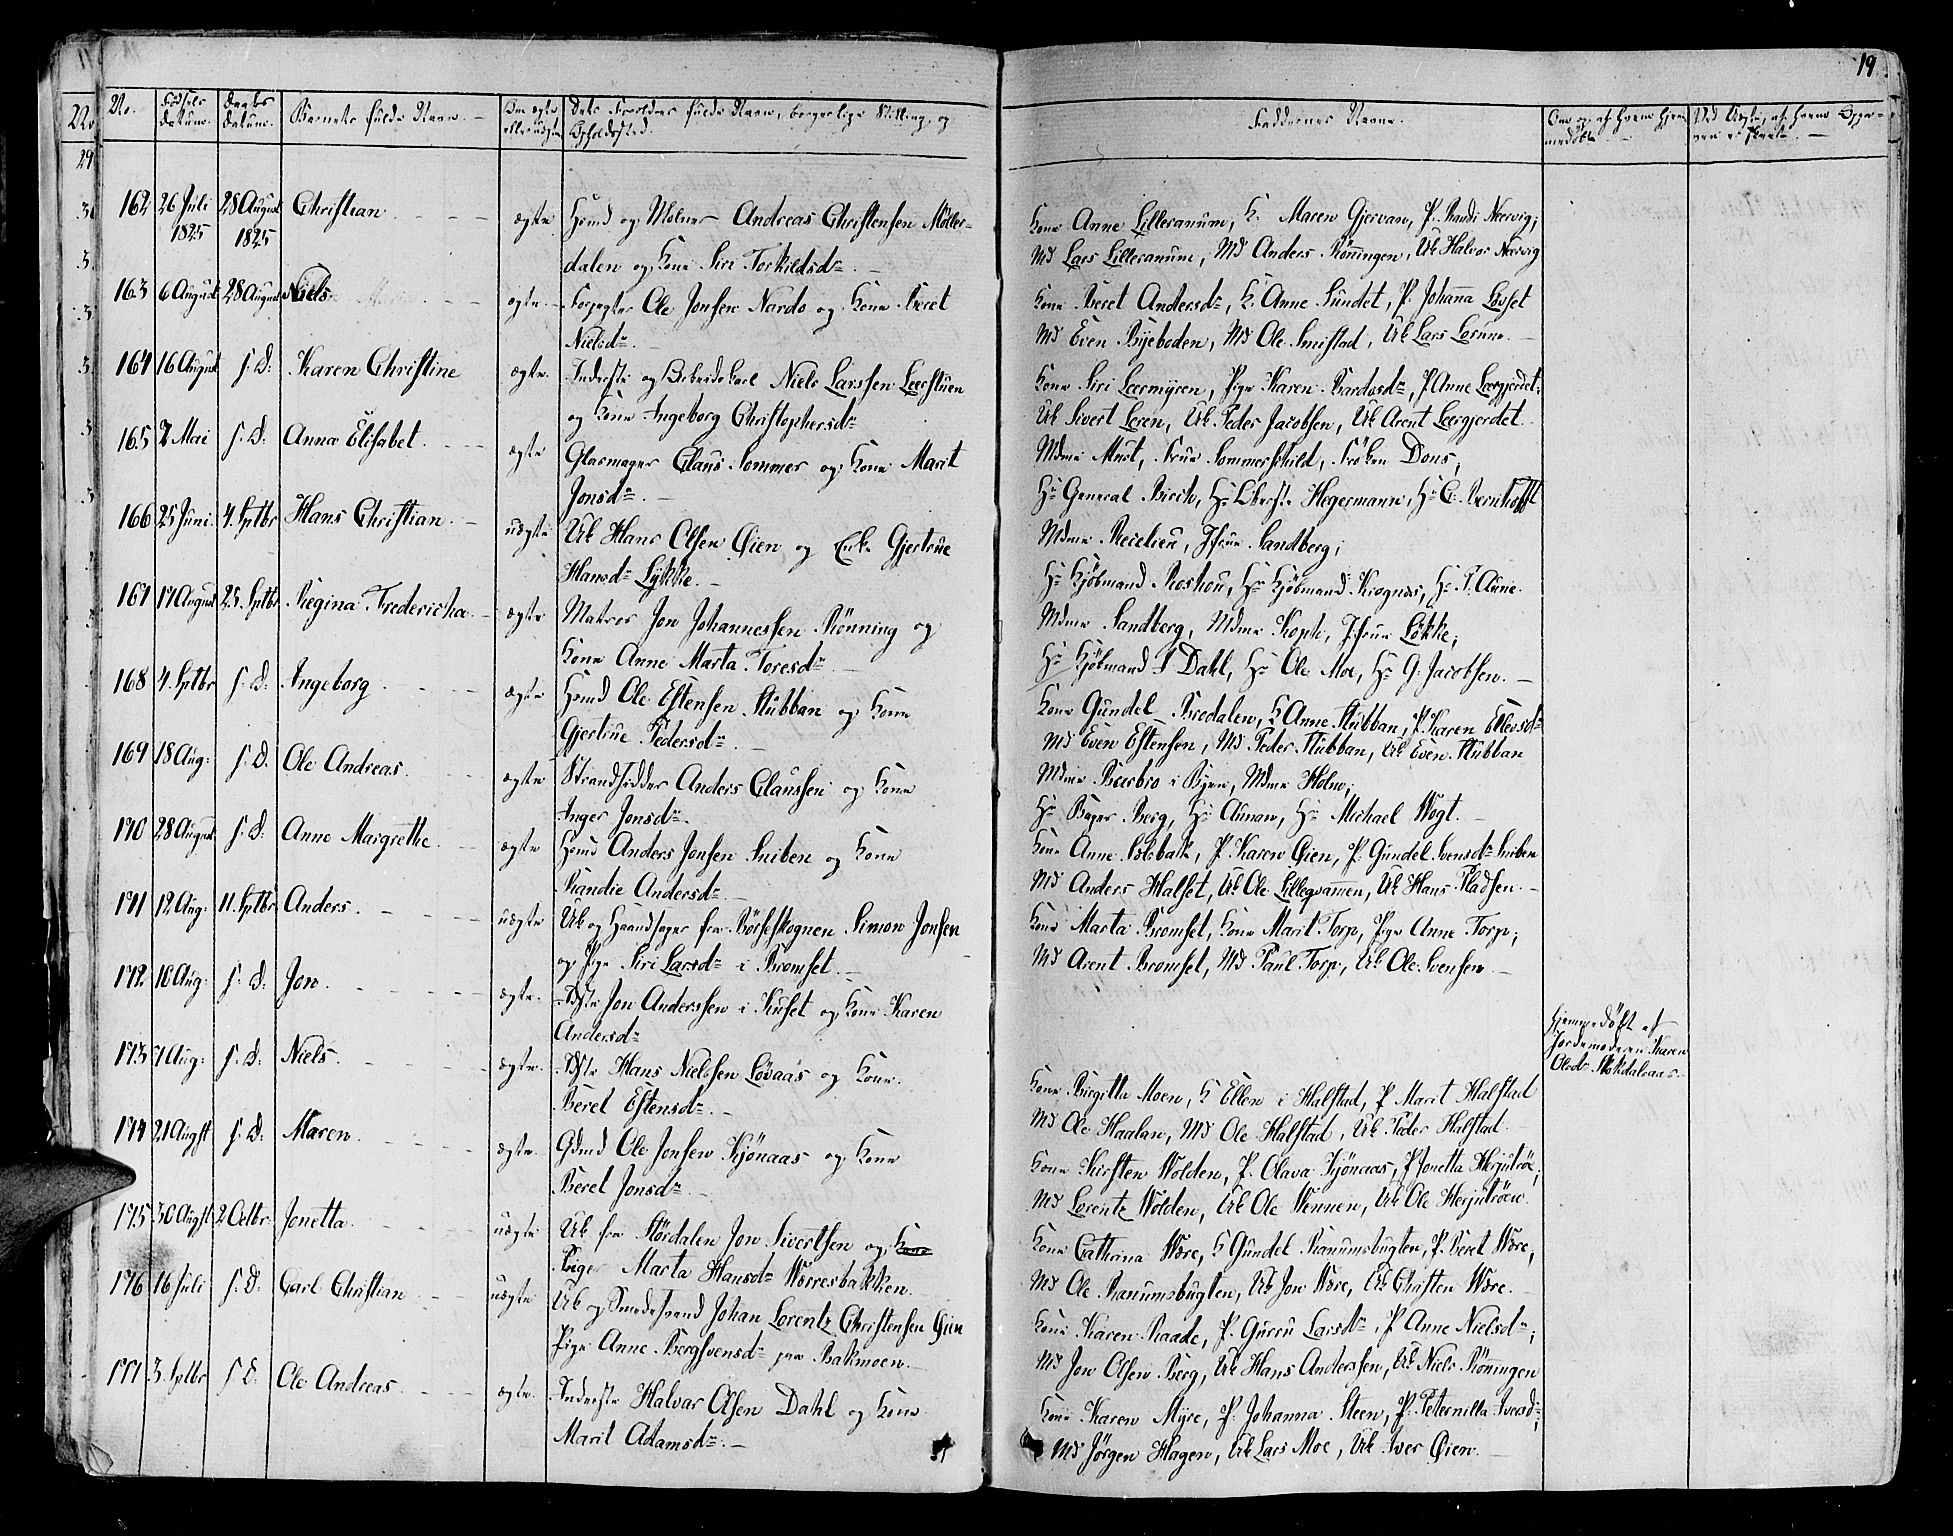 19
No. Fødsels Datum. Daabs Datum. Barnets fulde Navn. Om ægte eller uægte Dets Forældres fulde Navn, borgerlige Stilling, og Opholdssted.
Faddernes Navne.
162 26 Juli 1825 28 August 1825 Christian ægte Hmd og Molner Andreas Christensen Möller-
dalen og Kone Siri Torkildsdr
Kone Anne Lilleranum, K. Maren Gjervan, P. Randi Nervig;
Md Lars Lilleranum, Md Anders Rönningen, Uk Halvor Nervig
163 6 August 28 August Niels ægte Forpagter Ole Jonsen Nardo og Kone Beret
Nielsdr
Kone Beret Andersdr, K. Anne Sundet, P. Johanna Lovset
Md Even Byeboden, Md Ole Smistad, Uk Lars
164 16 August s. D. Karen Christine ægte Inderste og Arbeidskarl Niels Larssen Leerstuen
og Kone Ingeborg Christophersdr
Kone Siri Leermyren, Pige Karen Bardosdr, P Anne Leergjerdet.
Uk Sivert Leren, Uk Peder Jacobsen, Uk Arent Leergjerdet.
165 2 Mai s. D. Anna Elisabet ægte Glasmager Claus Sommer og Kone Marit
Jonsdr
Mdme Must, Frue Sommerschild, Frøken Dons,
Hr General Birch, Hr Oberste Hegermann, Hr C. Bernhofft
166 25 Juni 4 Sptbr Hans Christian uægte Uk Hans Olsen Øien og Enke Gjertrue
Hansdr Lykke
Mdme, Jfrue Sandberg;
Hr Kjöbmand, Hr Kjöbmand Krognæs, Hr T. Aune.
167 17 August 25. Sptbr Regina Fredericha ægte Matros Jon Johannessen Rönning og
Kone Anne Marta Toresdr
Mdme Sandberg, Mdme Koph, Jfrue Lökke;
Hr Kjöbmand I Dahl, Hr Ole Moe, Hr G. Jacobsen.
168 4. Sptbr s. D. Ingeborg ægte Hmd Ole Estensen Stubban og Kone
Gjertrue Pedersdr
Kone Gundel Bredalen, K Anne Stubban, P. Karen Ellevsdr
Md Even Estensen, Md Peder Stubban, Uk Even Stubban
169 18 Aug: s. D. Ole Andreas ægte Strandsidder Anders Claussen og Kone
Inger Jonsdr.
Mdme i Byen, Mdme Holm;
Hr Bager Berg, Hr Aunan, Hr Michael Wogt.
170 28 August s. D. Anne Margrethe ægte Hmd Anders Jonsen Sniben og Kone
Randie Andersdr
Kone Anne Solsbak, P. Karen Øien, P. Gundel Svensdr Sniben
Md Anders Halset, Uk Ole Lilleqvamen, Uk Hans Pladsen.
171 12 Aug: 11. Sptbr Anders uægte Uk og Haandsager fra Börseskognen Simon Jonsen
og Pige Siri Larsdr i Bromset.
Kone Marta Bromset, Kone Marit Torp, Pige Anne Torp;
Md Arent Bromset, Md Paul Torp, Uk Ole Svensen
172 10 Aug: s. D. Jon ægte Jon Anderssen i Huset og Kone Karen
Andersdr
Hjemmedöbt af
Jordemoderen Karen
Olsdr Stokdalaas
173 7 Aug: s. D. Niels ægte Hans Nielssen Løvaas og Kone
Beret Estensdr
Kone Birgitta Moen, K Ellen i Halstad, P Marit Halstad
Md Ole Haalan, Md Ole Halstad, Uk Peder Halstad
174 21 Augst s. D. Maren ægte Gdmd Ole Jonsen Kjönaas og Kone
Beret Jonsdr
Kone Kirsten Wolden, P. Olava Kjönaas, P Jonetta Herjutröe;
Md Lorentz Wolden, Uk Ole Wennen, Uk Ole Herjutröen
175 30 Augst 2 Octbr Jonetta uægte Uk fra Stördalen Jon Sivertsen og Kone
Pige Marta Hansdr Worresbakken.
Kone Cathrina Wore, K Gundel Ranumsbugten, P. Beret Wore;
Md Ole Ranumsbugten, Uk Jon Wore, Uk Christen Wore.
176 16 Juli s. D. Carl Christian uægte Uk og Smedesvend Johan Lorentz Christensen Øien
Pige Anne Bergsvensdr paa Bakmoen
Kone Karen Raade, P. Gurru Larsdr, P Anne Nielsdr;
Md Jon Olsen Berg, Uk Hans Anderssen, Uk Niels Rönningen
177 3 Sptbr s D. Ole Andreas ægte. Inderste Halvor Olsen Dahl og Kone
Marit Adamsdr.
Kone Karen Myre, P. Johanna Steen, P. Peternilla Iversdr;
Md Jörgen Hagen, Uk Lars Moe, Uk Iver Øien